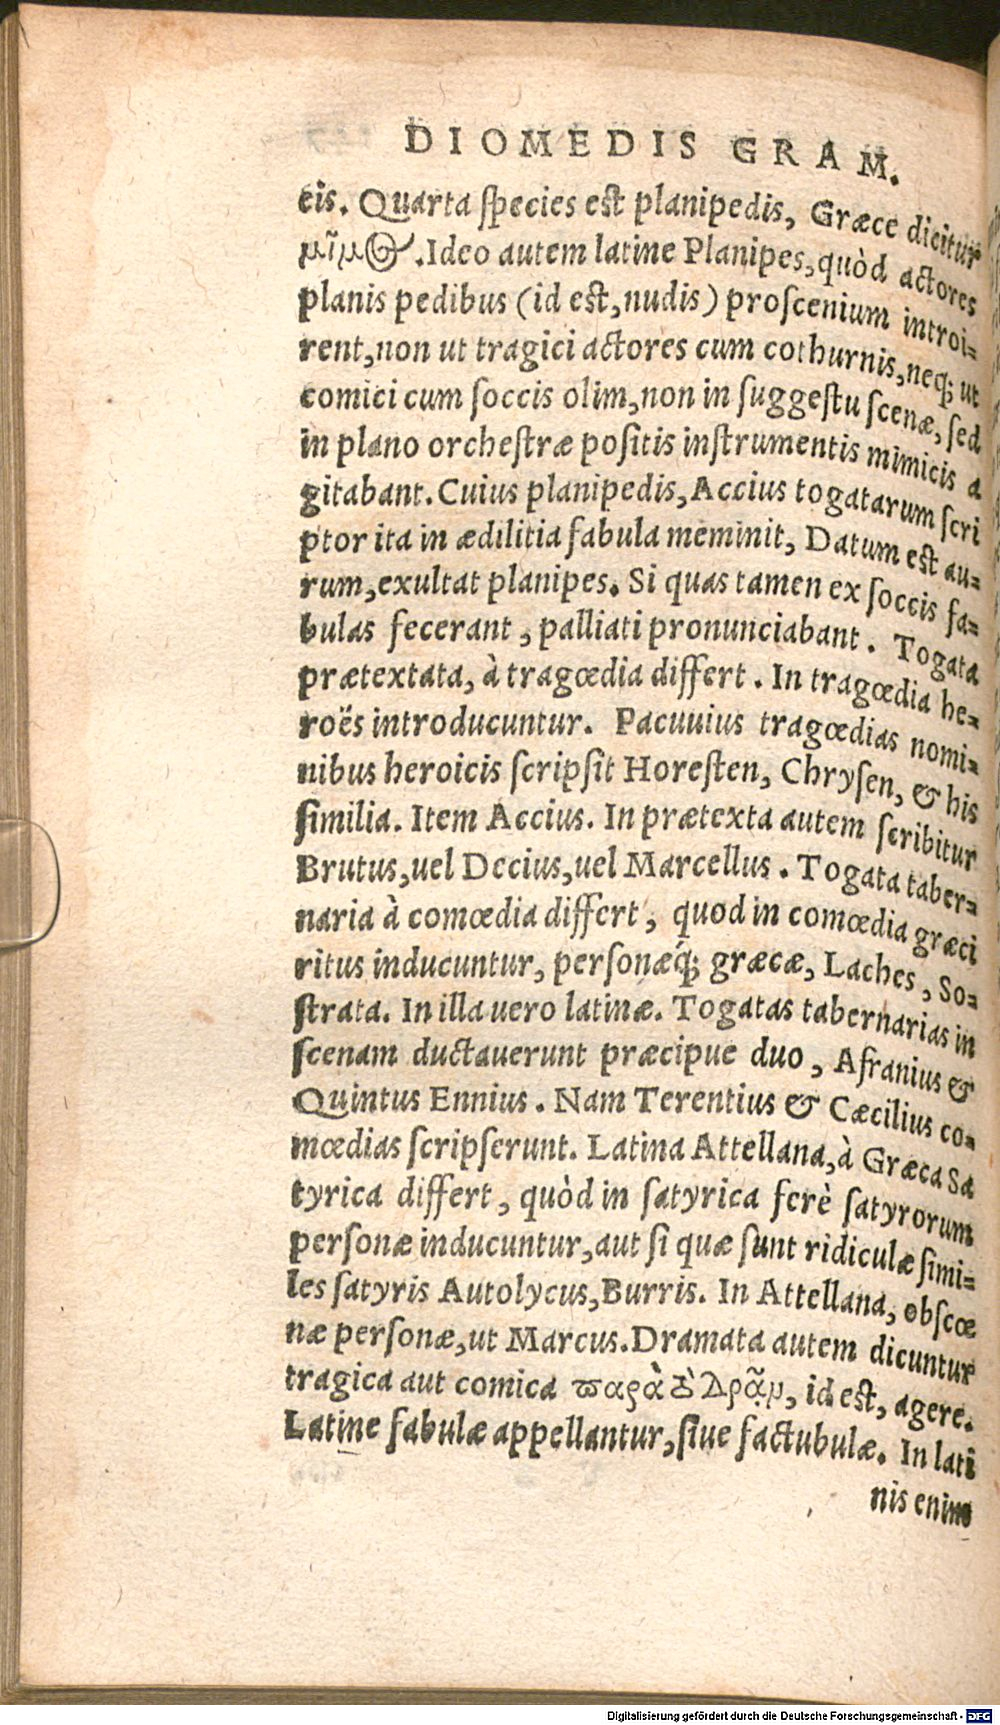 DIOMEDIS GRAM.
eis. Quarta species est planipedis, Græce dicitur
μῖμος. Ideo autem latine Planipes, quòd actores
planis pedibus (id est, nudis) proscenium introi=
rent, non ut tragici actores cum cothurnis, neq; ut
comici cum soccis olim, non in suggestu scenæ, sed
in plano orchestræ positis instrumentis mimicis a
gitabant. Cuius planipedis, Accius togatarum scri
ptor ita in ædilitia fabula meminit, Datum est au=
rum, exultat planipes. Si quas tamen ex soccis fa=
bulas fecerant, palliati pronunciabant. Togata
prætextata, à tragœdia differt. In tragœdia he=
roës introducuntur. Pacuuius tragœdias nomi=
nibus heroicis scripsit Horesten, Chrysen, & his
similia. Item Accius. In prætexta autem scribitur
Brutus, uel Decius, uel Marcellus. Togata taber=
naria à comœdia differt, quod in comœdia græci
ritus inducuntur, personæq́; græcæ, Laches, So=
strata. In illa uero latinæ. Togatas tabernarias in
scenam ductauerunt præcipue duo, Afranius &
Quintus Ennius. Nam Terentius & Cæcilius co=
mœdias scripserunt. Latina Attellana, à Græca Sa
tyrica differt, quòd in satyrica ferè satyrorum
personæ inducuntur, aut si quæ sunt ridiculæ simi=
les satyris Autolycus, Burris. In Attellana, obscœ
næ personæ, ut Marcus. Dramata autem dicuntur
tragica aut comica παρὰ τὸ δρᾷν, id est, agere.
Latine fabulæ appellantur, siue factubulæ. In lati
nis enim
Digitalisierung gefördert durch die Deutsche Forschungsgemeinschaft - DFG